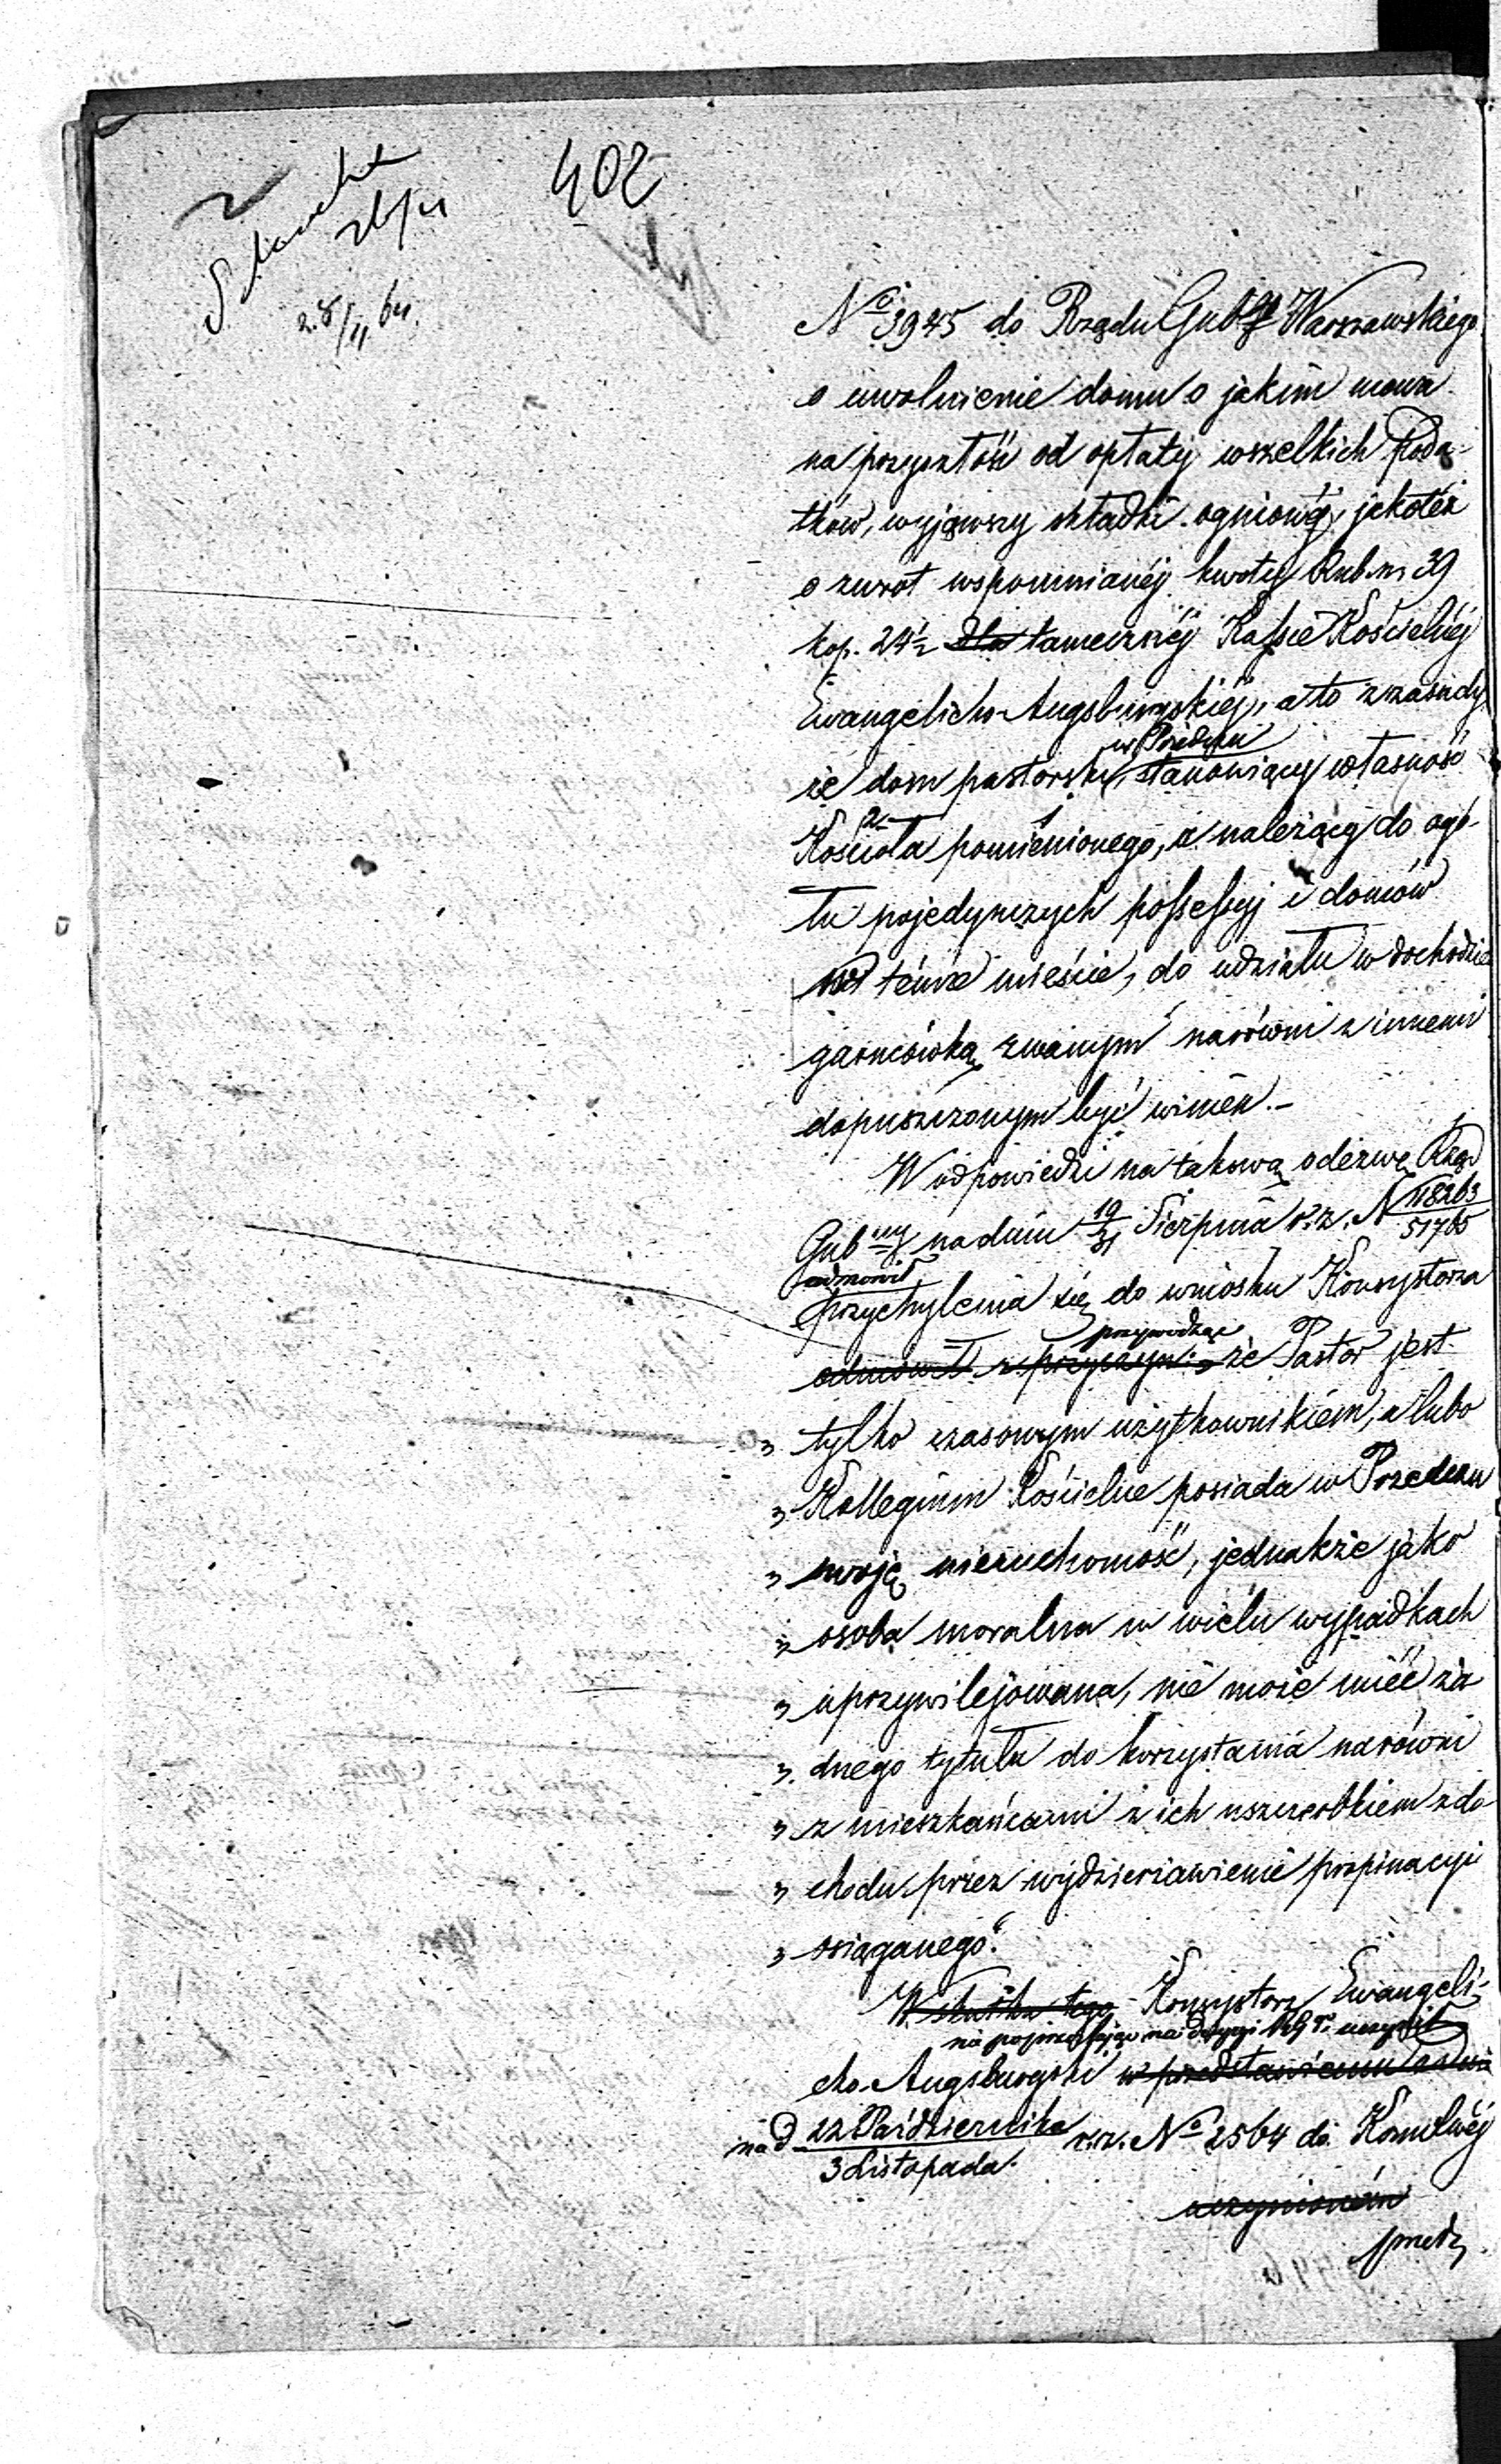 402
28/II 64.
No 3945 do Rządu Gubgo Warszawskiego
o uwolnienie domu o jakim mowa
na przyszłość od opłaty wszelkich Poda-
tków, wyjąwszy składki ogniowéj, jakotéż
o zwrot wspomnianéj kwoty Rub. sr. 39
kop. 24½ dla tamecznéj Kassie Kościelnéj
Ewangelicko-Augsburgskiéj, a to z zasady
w Przedczu
że dom pastorski, stanowiący własność
Kościoła pomienionego, a należący do ogó-
łu pojedynczych possessyj i domów
w témże mieście, do udziału w dochodzie
garncówką zwanym narówni z innemi
dopuszczonym być winien.-
W odpowiedzi na takową odezwę Rząd
Gubny na dniu 19/31 Sierpnia r. z. N 118263/51765
odmówił
przychylenia się do wniosku Konsystorza
przywodząc
odmówił z przyczyn: że Pastor jest
„ tylko czasowym użytkownikiem, a lubo
„ Kollegium Kościelne posiada w Przedczu
„ swoję nieruchomość, jednakże jako
„ osoba moralna w wielu wypadkach
„ uprzywilejowana, nie może mieć ża
„ dnego tytułu do korzystania narówni
„ z mieszkańcami z ich uszczerbkiem z do
„ chodu przez wydzierżawienie propinacyi
„ osiąganego."
W skutku tego Konsystorz Ewangeli-
nie poprzestając na decyzyi RGo uczynił
cko-Augsburgski w przedstawieniu
na d. 22 Października/3 Listopada r. z. No 2564 do Komilnéj
uczynioném
przedz